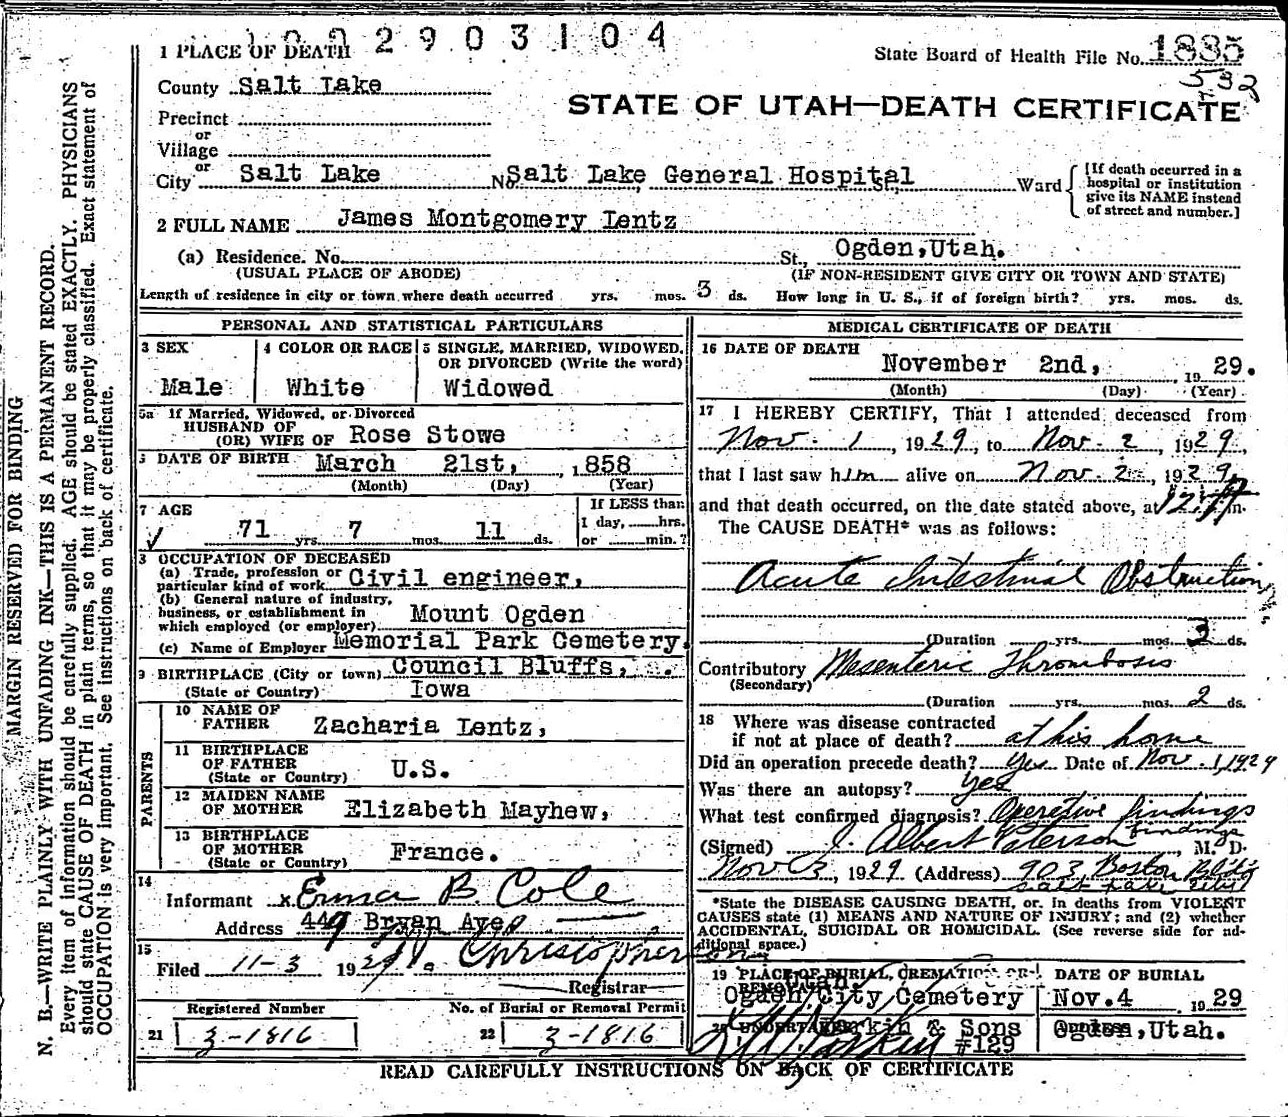 2 9 0 3 1 0 4
1 PLACE OF DEATH
State Board of Health File No. 1835
532
County Salt Lake
STATE OF UTAH—DEATH CERTIFICATE
Precinct
or
Village
or
City Salt Lake No. Salt Lake General Hospital St., Ward
[If death occurred in a
hospital or institution
give its NAME instead
of street and number.]
2 FULL NAME James Montgomery Lentz
(a) Residence. No. St., Ogden, Utah.
(USUAL PLACE OF ABODE) (IF NON-RESIDENT GIVE CITY OR TOWN AND STATE)
Length of residence in city or town where death occurred yrs. mos. 3 ds. How long in U. S., if of foreign birth? yrs. mos. ds.
PERSONAL AND STATISTICAL PARTICULARS
3 SEX
Male
4 COLOR OR RACE
White
5 SINGLE, MARRIED, WIDOWED,
OR DIVORCED (Write the word)
Widowed
5a If Married, Widowed, or Divorced
HUSBAND OF
(OR) WIFE OF Rose Stowe
DATE OF BIRTH March 21st, , 1858
(Month) (Day) (Year)
7 AGE
71 yrs. 7 mos. 11 ds.
If LESS than
1 day, hrs.
or min.?
8 OCCUPATION OF DECEASED
(a) Trade, profession or
particular kind of work Civil engineer,
(b) General nature of industry,
business, or establishment in
which employed (or employer) Mount Ogden
(c) Name of Employer Memorial Park Cemetery.
9 BIRTHPLACE (City or town) Council Bluffs,
(State or Country) Iowa
PARENTS
10 NAME OF
FATHER Zacharia Lentz,
11 BIRTHPLACE
OF FATHER
(State or Country) U.S.
12 MAIDEN NAME
OF MOTHER Elizabeth Mayhew,
13 BIRTHPLACE
OF MOTHER
(State or Country) France.
14
Informant x Erma B. Cole
Address 449 Bryan Ave
15
Filed 11-3 1929 Christopherson
Registrar
Registered Number
21 3-1816
No. of Burial or Removal Permit
22 3-1816
MEDICAL CERTIFICATE OF DEATH
16 DATE OF DEATH
November 2nd, , 19 29.
(Month) (Day) (Year)
17 I HEREBY CERTIFY, That I attended deceased from
Nov. 1, 1929, to Nov. 2, 1929,
that I last saw him alive on Nov. 2, 1929,
and that death occurred, on the date stated above, at m.
The CAUSE DEATH* was as follows:
Acute Intestinal Obstruction
(Duration yrs. mos. 3 ds.
Contributory Mesenteric Thrombosis
(Secondary)
(Duration yrs. mos. 2 ds.
18 Where was disease contracted
if not at place of death? at his home
Did an operation precede death? Yes Date of Nov. 1, 1929
Was there an autopsy? Yes
What test confirmed diagnosis? Operative findings
findings
(Signed) J. Albert Peterson, M. D.
Nov 3, 1929 (Address) 903 Boston Bldg
Salt Lake City
*State the DISEASE CAUSING DEATH, or, in deaths from VIOLENT
CAUSES state (1) MEANS AND NATURE OF INJURY; and (2) whether
ACCIDENTAL, SUICIDAL OR HOMICIDAL. (See reverse side for ad-
ditional space.)
19 PLACE OF BURIAL, CREMATION OR
REMOVAL
Ogden City Cemetery
DATE OF BURIAL
Nov. 4 19 29
20 UNDERTAKER Larkin & Sons
#129
Ogden, Utah.
READ CAREFULLY INSTRUCTIONS ON BACK OF CERTIFICATE
MARGIN RESERVED FOR BINDING
N. B.—WRITE PLAINLY WITH UNFADING INK—THIS IS A PERMANENT RECORD.
Every item of information should be carefully supplied. AGE should be stated EXACTLY. PHYSICIANS
should state CAUSE OF DEATH in plain terms, so that it may be properly classified. Exact statement of
OCCUPATION is very important. See instructions on back of certificate.